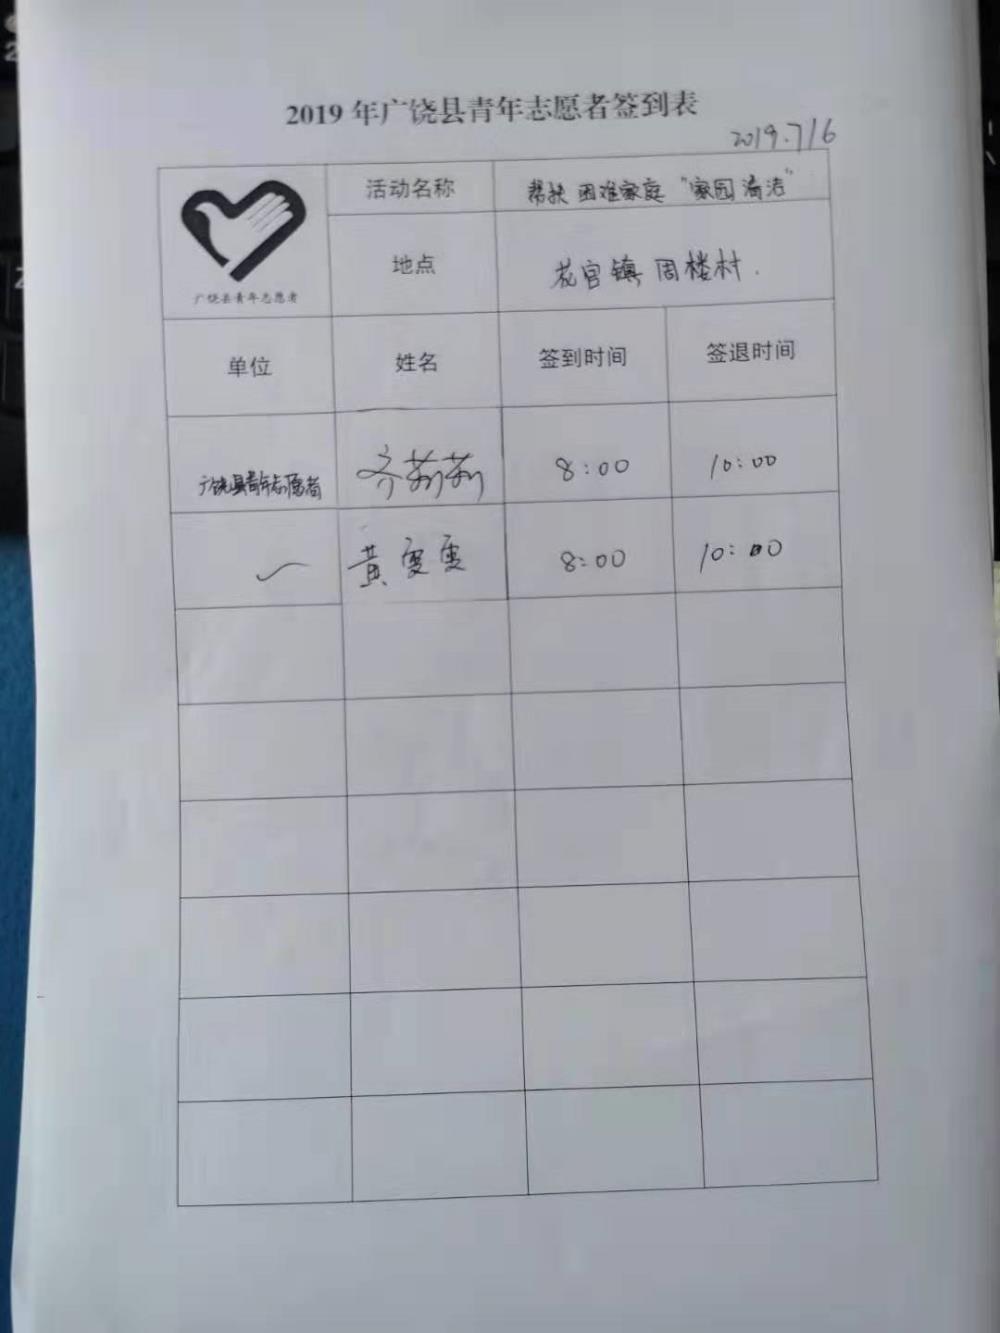 2019年广饶县青年志愿者签到表
2019.7/6
活动名称 帮扶困难家庭“家园清洁”
地点 花官镇周楼村.
广饶县青年志愿者
单位 姓名 签到时间 签退时间
广饶县青年志愿者 齐莉莉 8:00 10:00
黄雯雯 8:00 10:00